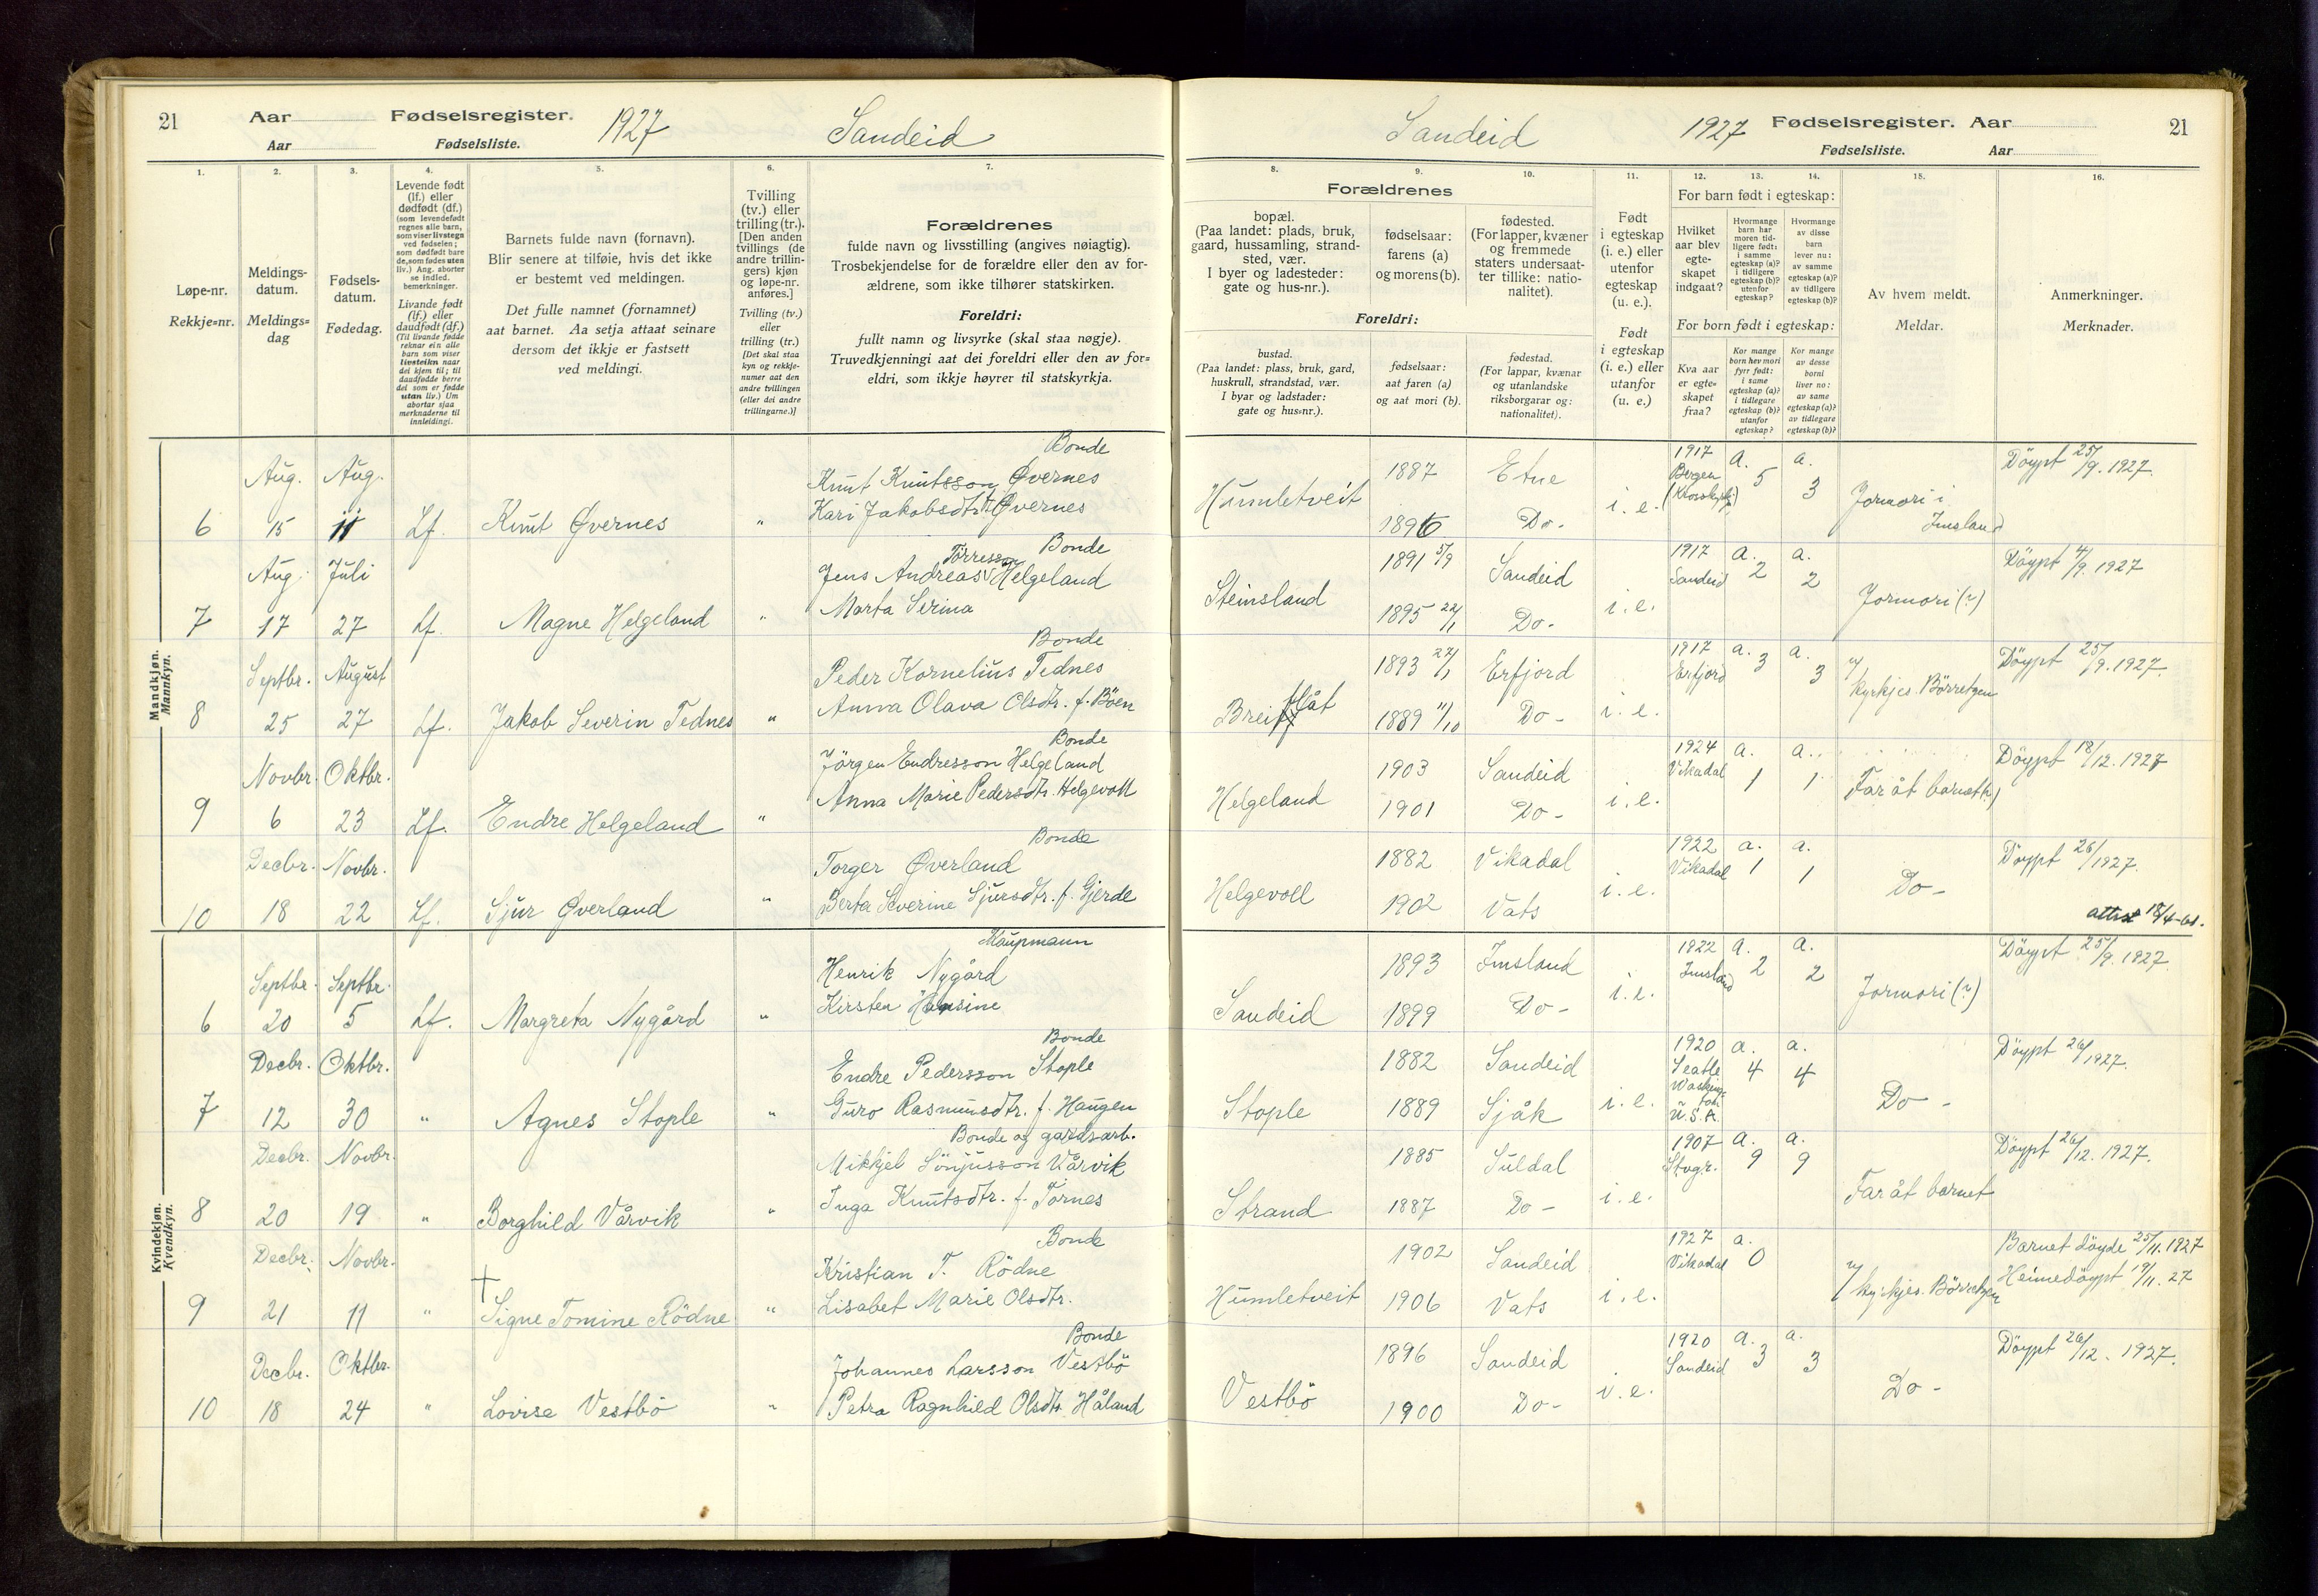 21 Aar Fødselsregister. 1927 Sandeid
Aar Fødselsliste.
1. 2. 3. 4. 5. 6. 7.
Løpe-nr.
Rekkje=nr.
Meldings-
datum.
Meldings=
dag
Fødsels-
datum.
Fødedag.
Levende født
(lf.) eller
dødfødt (df.)
(som levendefødt
regnes alle barn,
som viser livstegn
ved fødselen;
som dødfødt bare
de, som fødes uten
liv.) Ang. aborter
se indled.
bemerkninger.
Livande født
(lf.) eller
daudfødt (df.)
(Til livande fødde
reknar ein alle
barn som viser
livsteikn naar
dei kjem til; til
daudfødde berre
dei som er fødde
utan liv.) Um
abortar sjaa
merknaderne til
innleidingi.
Barnets fulde navn (fornavn).
Blir senere at tilføie, hvis det ikke
er bestemt ved meldingen.
Det fulle namnet (fornamnet)
aat barnet. Aa setja attaat seinare
dersom det ikkje er fastsett
ved meldingi.
Tvilling
(tv.) eller
trilling (tr.).
[Den anden
tvillings (de
andre trillin-
gers) kjøn
og løpe-nr.
anføres.]
Tvilling (tv.)
eller
trilling (tr.)
[Det skal staa
kyn og rekkje-
numer aat den
andre tvillingen
(eller dei andre
trillingarne.)]
Forældrenes
fulde navn og livsstilling (angives nøiagtig).
Trosbekjendelse for de forældre eller den av for-
ældrene, som ikke tilhører statskirken.
Foreldri:
fullt namn og livsyrke (skal staa nøgje).
Truvedkjenningi aat dei foreldri eller den av for=
eldri, som ikkje høyrer til statskyrkja.
Mandkjøn.
Mannkyn.
Bonde
Aug. Aug. Knut Knutsson Øvernes
Kari Jakobsdtr. Øvernes
6 15 11 Lf. Knut Øvernes "
Bonde
Aug. Juli Jens Andreas Tørresson Helgeland
Marta Serina
7 17 27 Lf. Magne Helgeland "
Bonde
Septbr. August Peder Kornelius Tednes
Anna Olava Olsdtr. f. Böen
8 25 27 Lf. Jakob Severin Tednes "
Bonde
Novbr. Oktbr. Jörgen Endresson Helgeland
Anna Marie Pedersdtr. Helgevoll
9 6 23 Lf. Endre Helgeland "
Bonde
Decbr. Novbr. Torger Øverland
Berta Severine Sjursdtr. f. Gjerde
10 18 22 Lf. Sjur Øverland "
Kvindekjøn.
Kvendkyn.
Kaupmann
Septbr. Septbr. Henrik Nygård
Kirsten Hansine
6 20 5 Lf. Margreta Nygård "
Bonde
Decbr. Oktbr. Endre Pedersson Stople
Guro Rasmusdtr. f. Haugen
7 12 30 " Agnes Stople "
Bonde og gardsarb.
Decbr. Novbr. Mikkjel Sönjusson Vårvik
Inga Knutsdtr. f. Tornes
8 20 19 " Borghild Vårvik "
Bonde
Decbr. Novbr. Kristian T. Rödne
Lisabet Marie Olsdtr.
9 21 11 " Signe Tomine Rödne "
Bonde
Decbr. Oktbr. Johannes Larsson Vestbö
Petra Ragnhild Olsdtr. Håland
10 18 24 " Lovise Vestbö "
Sandeid 1927 Fødselsregister. Aar 21
Fødselsliste. Aar
8. 9. 10. 11. 12. 13. 14. 15. 16.
Forældrenes
bopæl.
(Paa landet: plads, bruk,
gaard, hussamling, strand-
sted, vær.
I byer og ladesteder:
gate og hus-nr.).
fødselsaar:
farens (a)
og morens (b).
fødested.
(For lapper, kvæner
og fremmede
staters undersaat-
ter tillike: natio-
nalitet).
Foreldri:
bustad.
(Paa landet: plass, bruk, gard,
huskrull, strandstad, vær.
I byar og ladstader:
gate og hus=nr.).
fødselsaar:
aat faren (a)
og aat mori (b).
fødestad.
(For lappar, kvænar
og utanlandske
riksborgarar og:
nationalitet).
Født
i egteskap
(i. e.) eller
utenfor
egteskap
(u. e.).
Født
i egteskap
(i. e.) eller
utanfor
(u. e.).
For barn født i egteskap:
Hvilket
aar blev
egte-
skapet
indgaat?
Hvormange
barn har
moren tid-
ligere født:
i samme
egteskap (a)?
i tidligere
egteskap (b)?
utenfor
egteskap?
Hvormange
av disse
barn
lever nu:
av samme
egteskap (a)?
av tidligere
egteskap (b)?
For born født i egteskap:
Kva aar
er egte=
skapet
fraa?
Kor mange
born hev mori
fyrr født:
i same
egteskap (a)?
i tidlegare
egteskap (b)?
utanfor
egteskap?
Kor mange
av desse
borni
liver no:
av same
egteskap (a)?
av tidlegare
egteskap (b)?
Av hvem meldt.
Meldar.
Anmerkninger.
Merknader.
Humletveit 1887 Etne i. e. 1917 Bergen a. 5 a. 3 Jormori i Imsland Döypt 25/9. 1927
1896 Do.
Steinsland 1891 5/9 Sandeid i. e. 1917 Sandeid a. 2 a. 2 Jormori (?) Döypt 4/9. 1927
1895 22/1 Do.
Breiflåt 1893 22/1 Erfjord i. e. 1917 Erfjord a. 3 a. 3 kyrkjes. Börretzen Döypt 25/9. 1927.
1889 11/10 Do-
Helgeland 1903 Sandeid i. e. 1924 Vikadal a. 1 a. 1 Far åt barnet Döypt 18/12. 1927
1901 Do-
Helgevoll 1882 Vikadal i. e. 1922 Vikadal a. 1 a. 1 Do- Döypt 26/1927.
1902 Vats
attest 18/4-61.
Sandeid 1893 Imsland i. e. 1922 Imsland a. 2 a. 2 Jormori (?) Döypt 25/9. 1927.
1899 Do-
Stople 1882 Sandeid i. e. 1920 Seatle Washington U.S.A. a. 4 a. 4 Do- Döypt 26/1927.
1889 Sjåk
Strand 1885 Suldal i. e. 1907 Stvgr. a. 9 a. 9 Far åt barnet Döypt 26/12. 1927.
1887 Do-
Humletveit 1902 Sandeid i. e. 1927 Vikadal a. 0 kyrkjes. Börretzen Barnet döyde 25/11. 1927
1906 Vats Heimedöypt 19/11. 27
Vestbö 1896 Sandeid i. e. 1920 Sandeid a. 3 a. 3 Do- Döypt 26/12. 1927.
1900 Do-